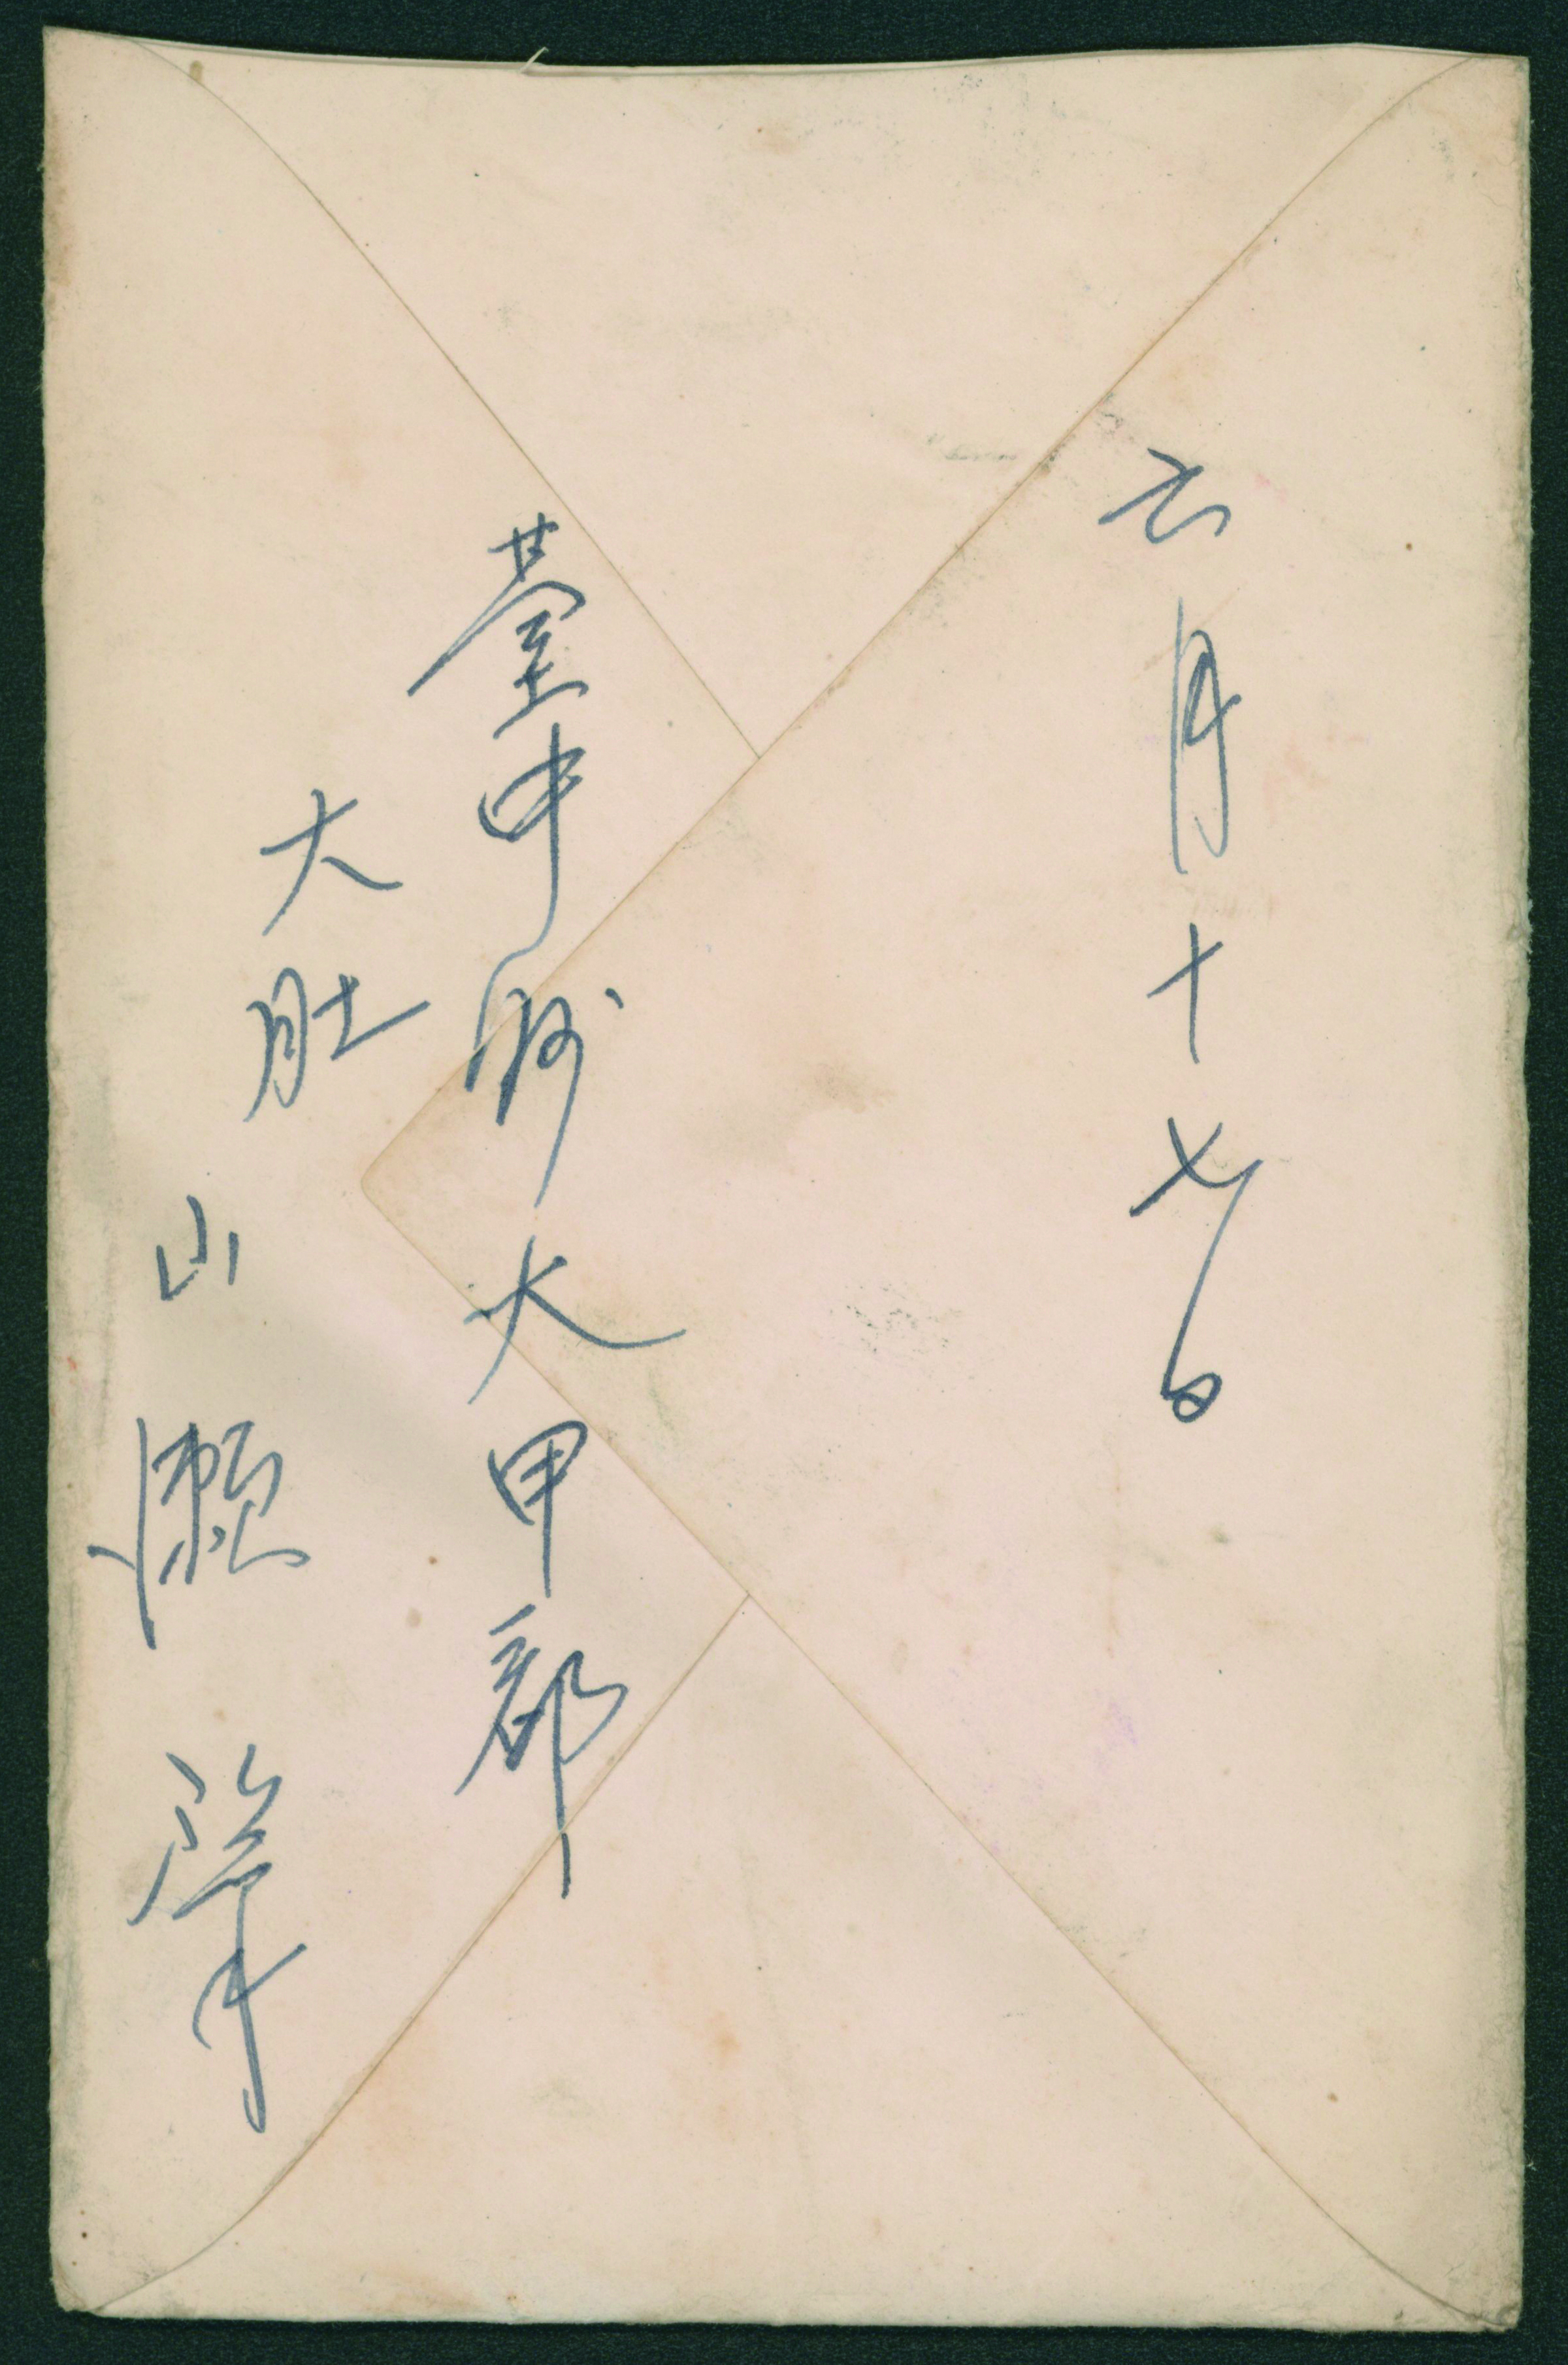 六月十七日
臺中州大甲郡
大肚
山瀬肇